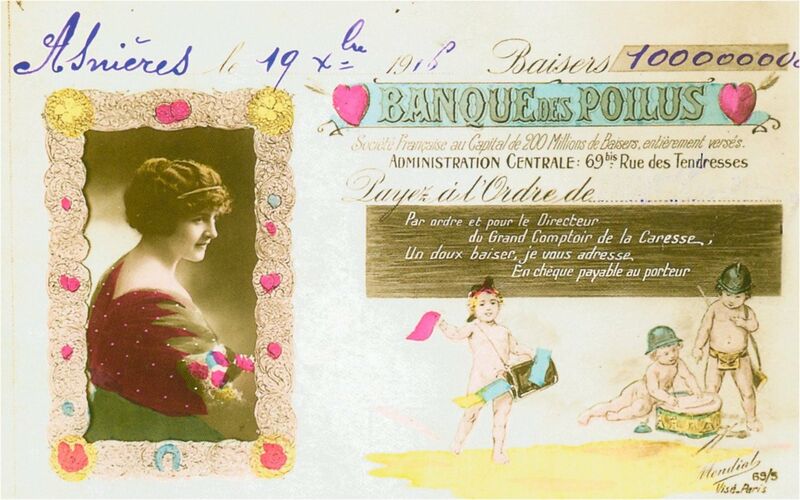 Asnières le 19 Xbre 1916 Baisers 100000000
BANQUE DES POILUS
Société Française au Capital de 200 Millions de Baisers, entièrement versés.
ADMINISTRATION CENTRALE: 69bis Rue des Tendresses
Payez à l'Ordre de
Par ordre et pour le Directeur
du Grand Comptoir de la Caresse,
Un doux baiser, je vous adresse
En chèque payable au porteur
Mondial
69/5
Visé-Paris